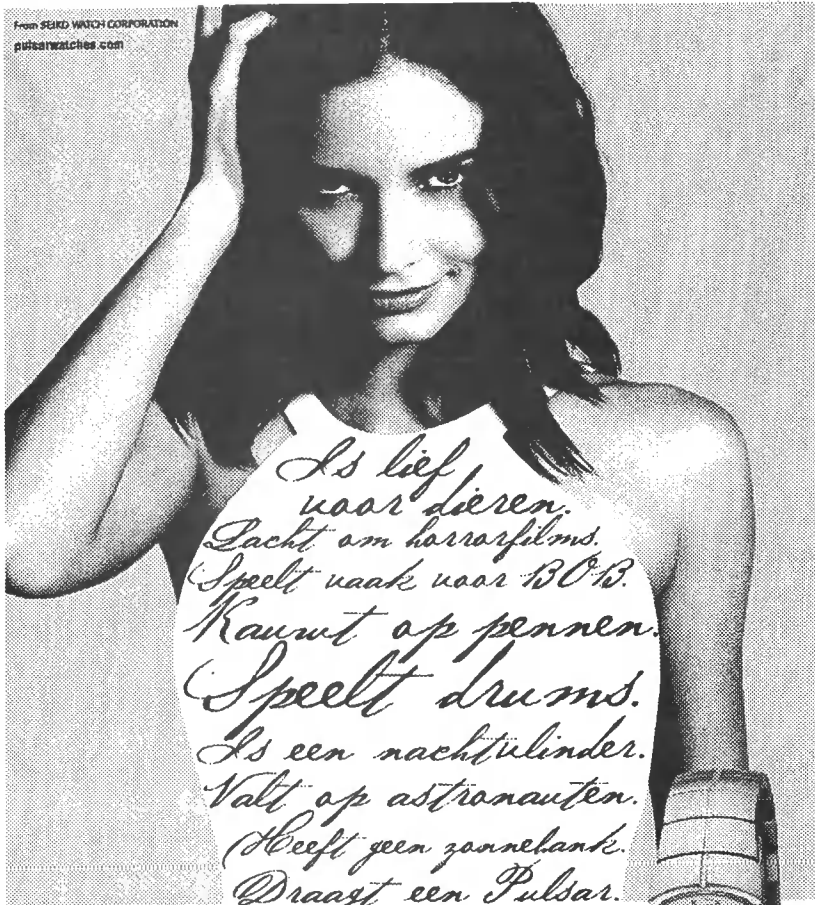 From SEIKO WATCH CORPORATION
pulsarwatches.com
Is lief
voor dieren.
Lacht om horrorfilms.
Speelt vaak voor BOB.
Kauwt op pennen.
Speelt drums.
Is een nachtvlinder.
Valt op astronauten.
Heeft geen zonnebank.
Draagt een Pulsar.